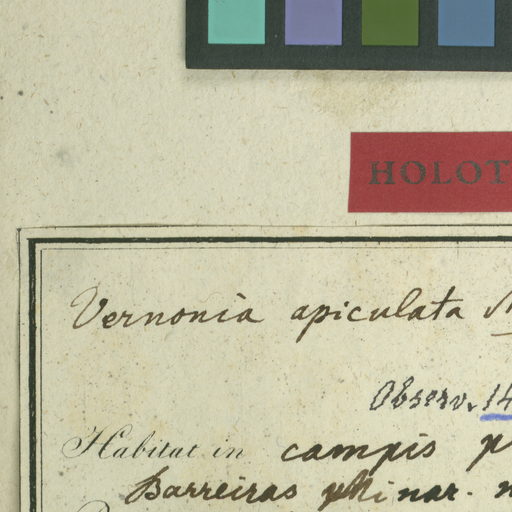 HOLOT
Vernonia apiculata M
Observ. 14
Habitat in campis p
Barreiras nar. n